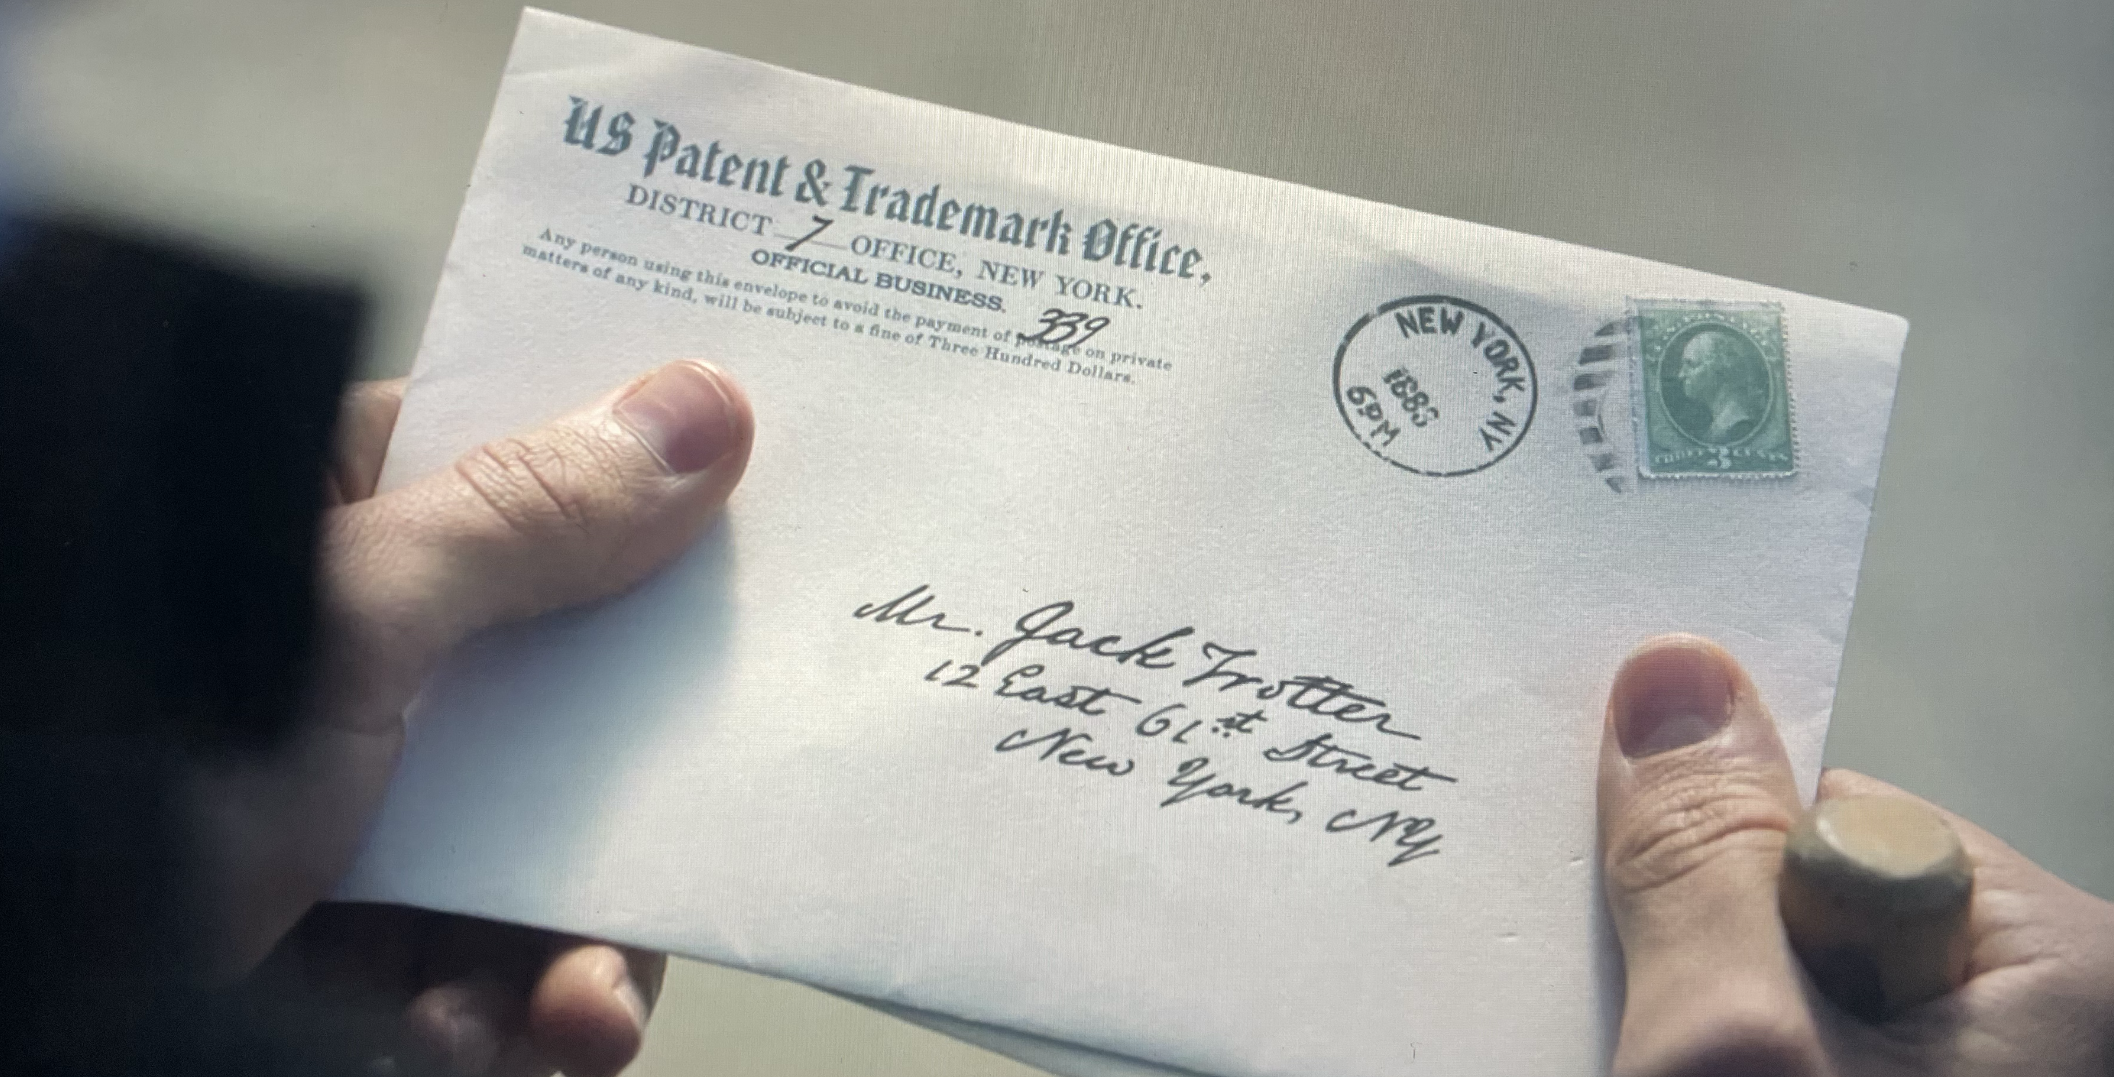 US Patent & Trademark Office,
DISTRICT 7 OFFICE, NEW YORK.
OFFICIAL BUSINESS.
339
Any person using this envelope to avoid the payment of postage on private
matters of any kind, will be subject to a fine of Three Hundred Dollars.
NEW YORK, NY
1883
6PM
THREE 3 CENTS
Mr. Jack Trotter
12 East 61st Street
New York, NY